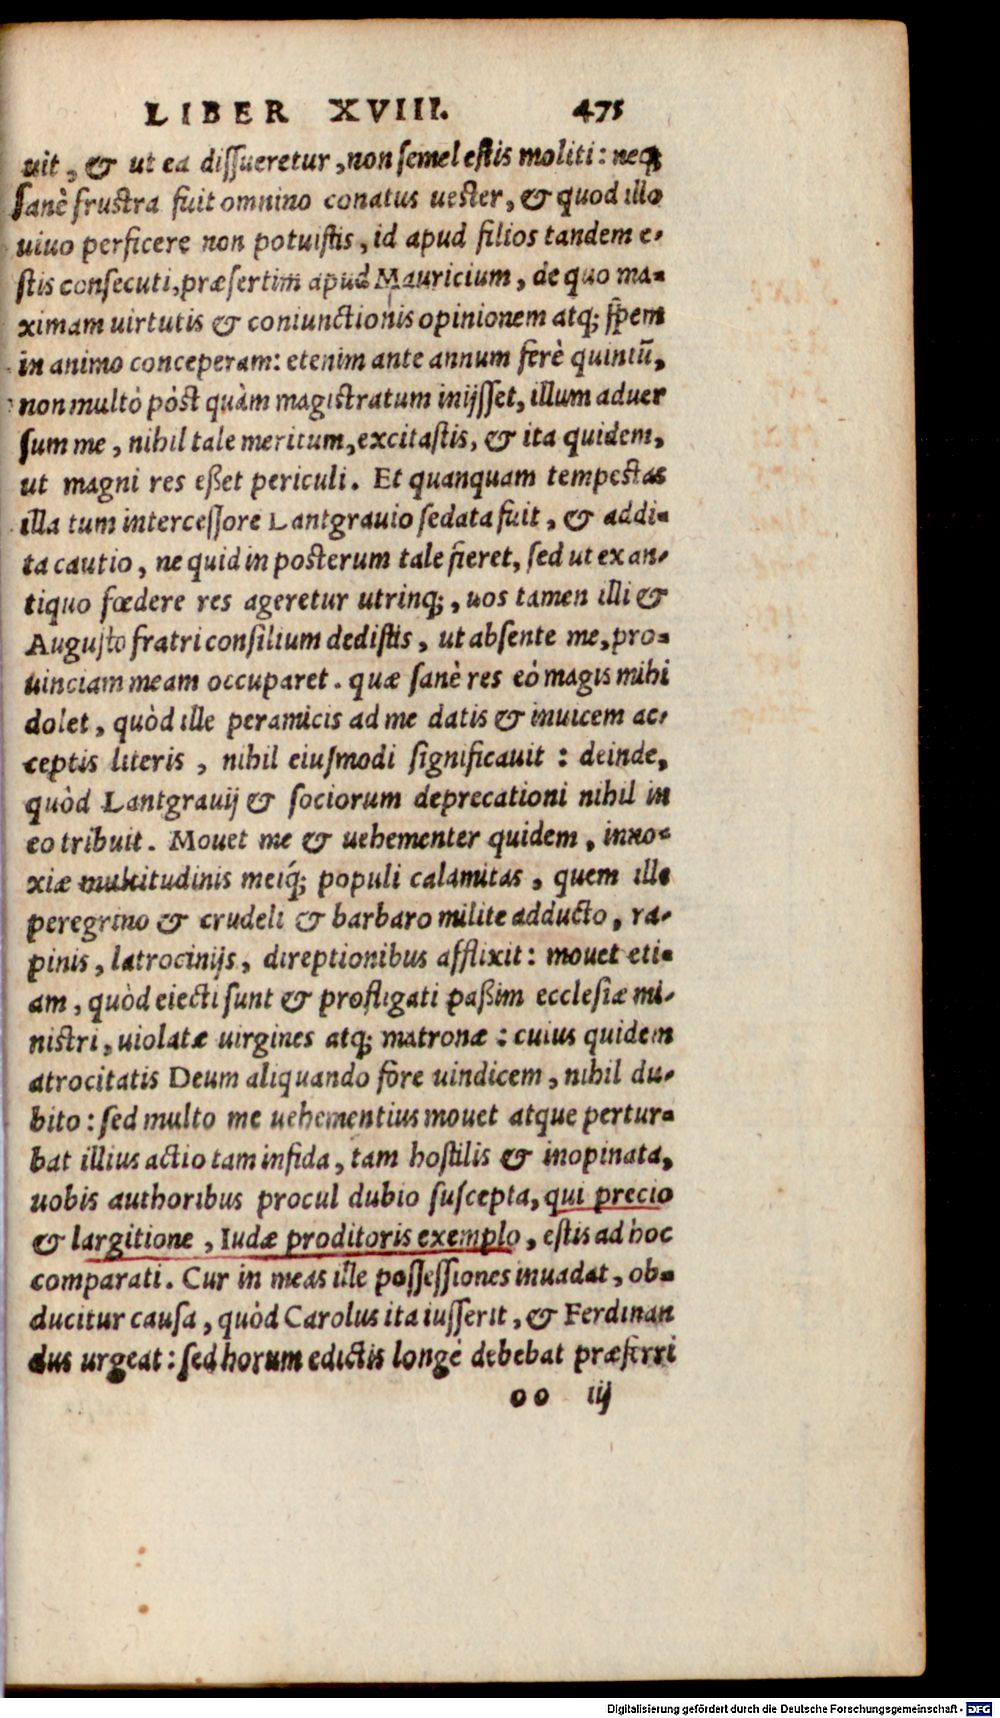 LIBER XVIII. 475
uit, & ut ea dissueretur, non semel estis moliti: neq;
sanè frustra fuit omnino conatus uester, & quod illo
uiuo perficere non potuistis, id apud filios tandem e-
stis consecuti, præsertim apud Mauricium, de quo ma-
ximam uirtutis & coniunctionis opinionem atq; spem
in animo conceperam: etenim ante annum ferè quintū,
non multò pòst quàm magistratum inijsset, illum aduer
sum me, nihil tale meritum, excitastis, & ita quidem,
ut magni res eßet periculi. Et quanquam tempestas
illa tum intercessore Lantgrauio sedata fuit, & addi-
ta cautio, ne quid in posterum tale fieret, sed ut ex an-
tiquo fœdere res ageretur utrinq;, uos tamen illi &
Augusto fratri consilium dedistis, ut absente me, pro-
uinciam meam occuparet. quæ sanè res eò magis mihi
dolet, quòd ille peramicis ad me datis & inuicem ac-
ceptis literis, nihil eiusmodi significauit: deinde,
quòd Lantgrauij & sociorum deprecationi nihil in
eo tribuit. Mouet me & uehementer quidem, inno-
xiæ multitudinis meiq́; populi calamitas, quem ille
peregrino & crudeli & barbaro milite adducto, ra-
pinis, latrocinijs, direptionibus afflixit: mouet eti-
am, quòd eiecti sunt & profligati paßim ecclesiæ mi-
nistri, uiolatæ uirgines atq; matronæ: cuius quidem
atrocitatis Deum aliquando fore uindicem, nihil du-
bito: sed multo me uehementius mouet atque pertur-
bat illius actio tam infida, tam hostilis & inopinata,
uobis authoribus procul dubio suscepta, qui precio
& largitione, Iudæ proditoris exemplo, estis ad hoc
comparati. Cur in meas ille possessiones inuadat, ob-
ducitur causa, quòd Carolus ita iusserit, & Ferdinan
dus urgeat: sed horum edictis longè debebat præferri
oo iij
Digitalisierung gefördert durch die Deutsche Forschungsgemeinschaft - DFG